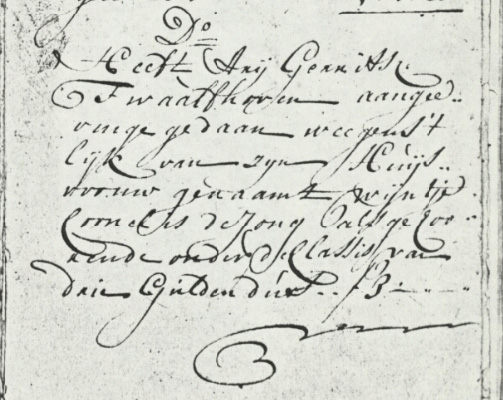 Do
Heeft Arij Gerritse
Twaalfhoven aangie..
vinge gedaan weegens 't
lijk van zijn Huijs..
vrouw genaamt Wijntje
Cornelis de Jong als gehoo
rende onder de Classis van
drie Gulden dus.. f 3